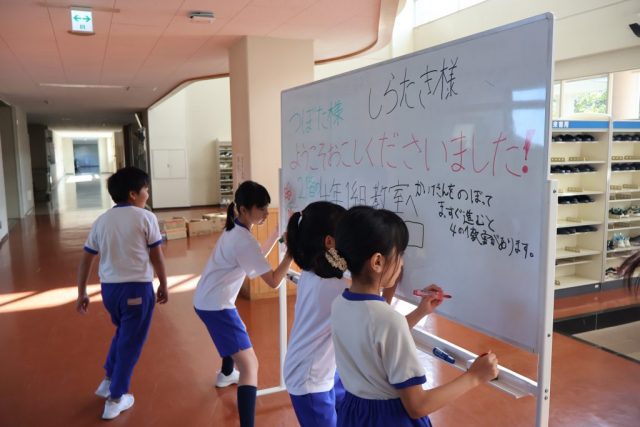 しらたき様
つぼた様
ようこそおこしくださいました!
2階 4年1組教室へ
かいだんをのぼって
まっすぐ進むと
4の1教室があります。